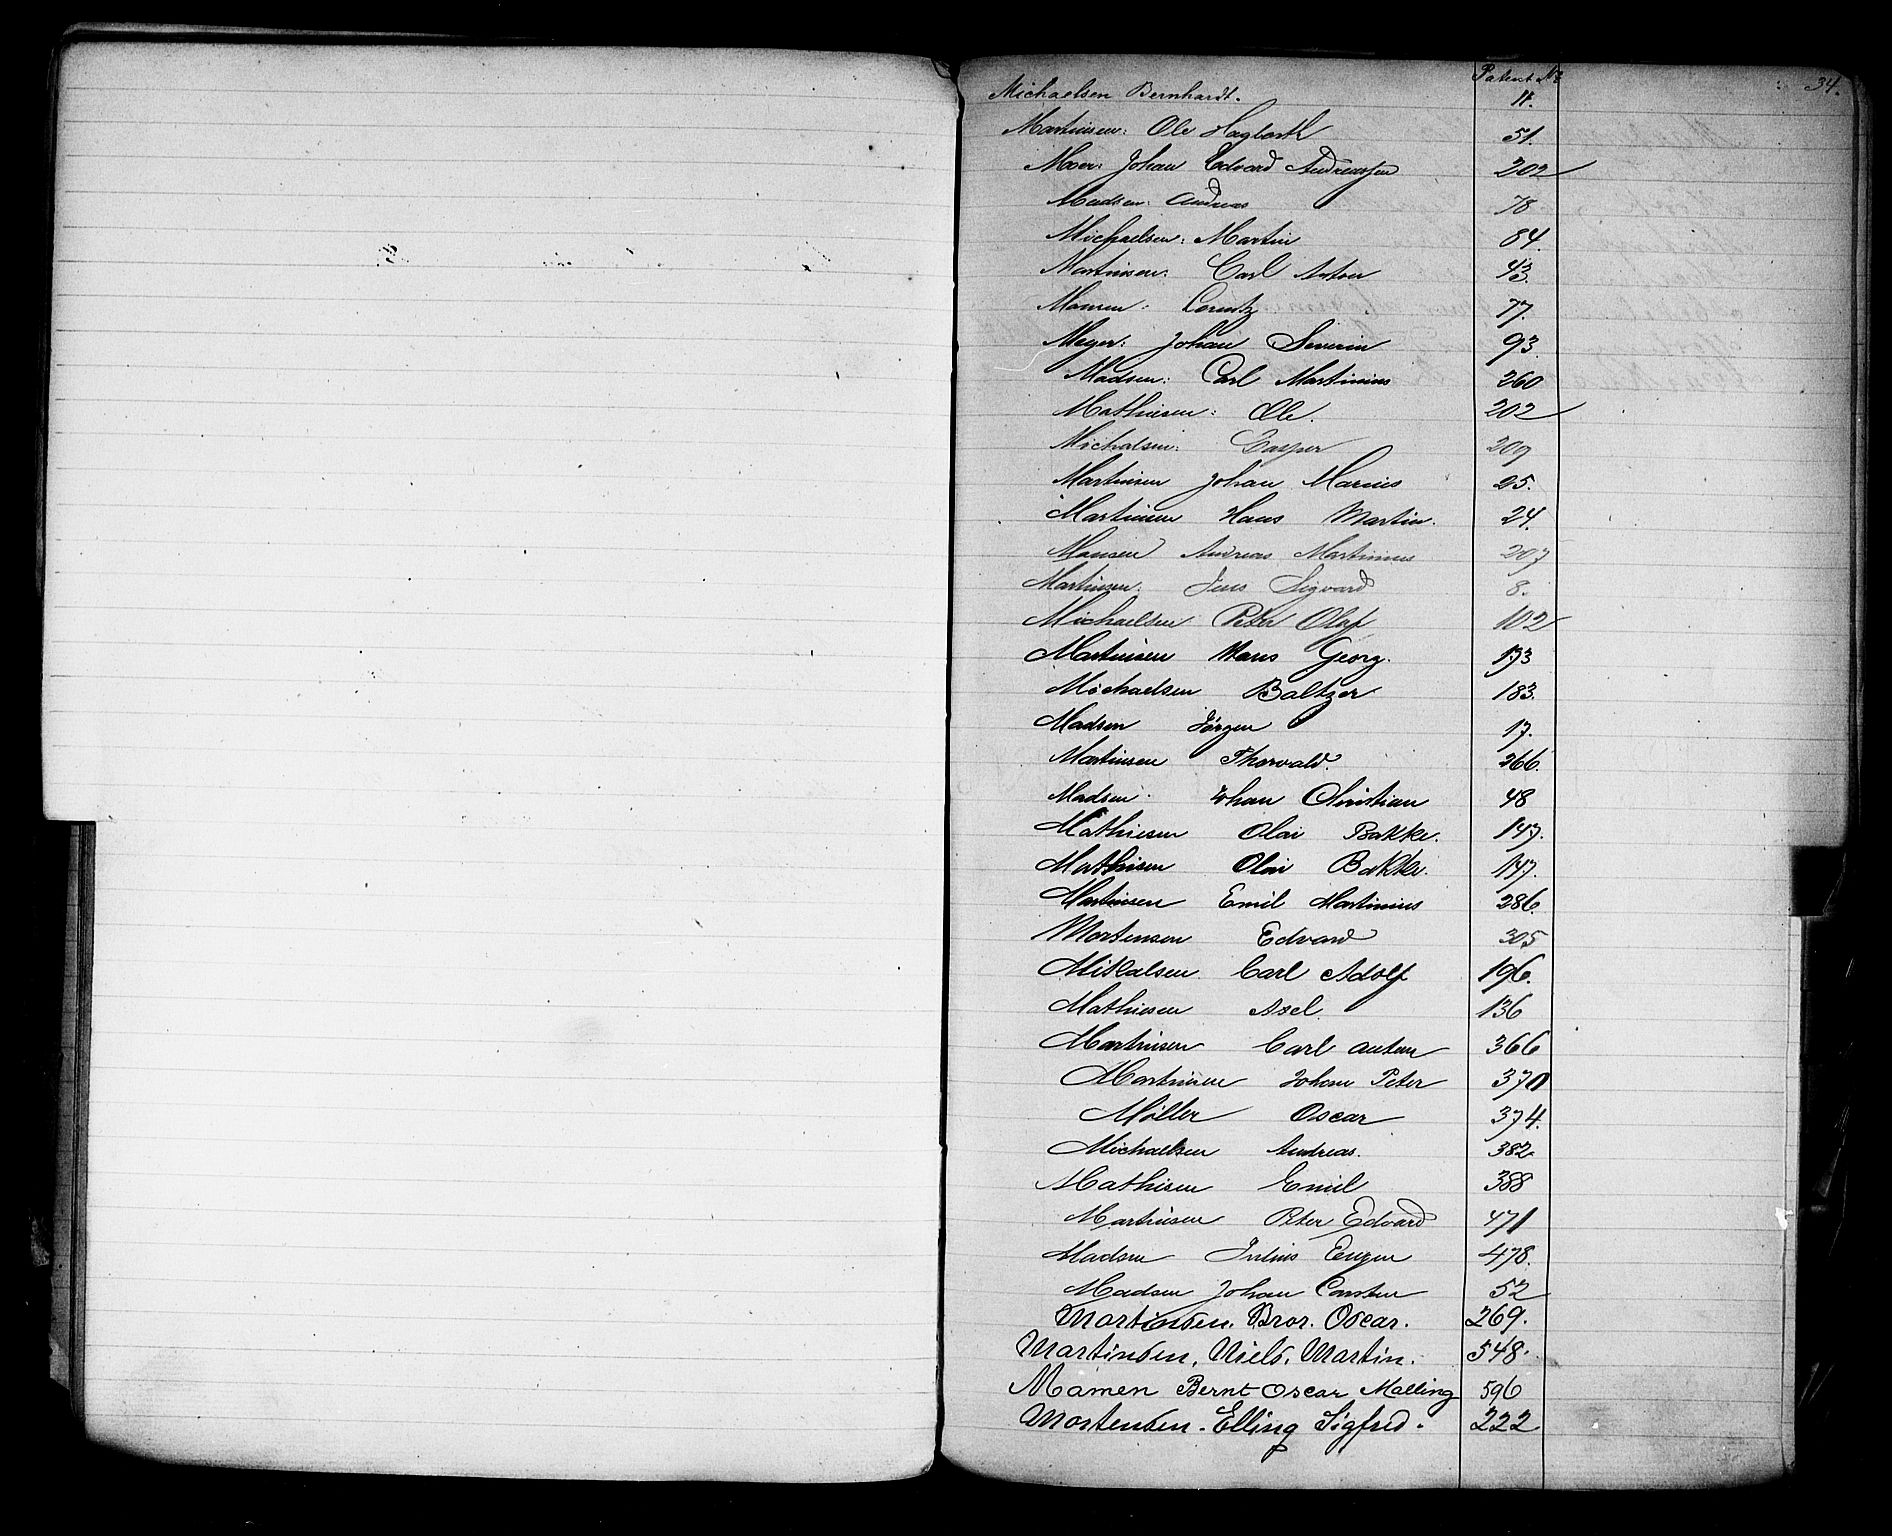 Patent № 34.
Michaelsen Bernhardt. 11.
Martinsen: Ole Hagbarth 51.
Moer: Johan Edvard Andreassen 202
Madsen: Andreas 78
Michaelsen: Martin 84.
Martinsen: Carl Anton 43.
Lorentz 77.
Meyer: Johan Severin 93.
Madsen: Carl Martinius 260
Mathiesen: Ole. 202
Michalsen: Casper 209
Martinsen Johan Marius 25.
Martinsen Hans Martin. 24.
Andreas Martinius 207
Martinsen: Jens Sigvard 8.
Michaelsen Peter Olaf 102
Martinsen Hans Georg. 173
Michaelsen Baltzer 183.
Madsen Jørgen 17.
Martinsen Thorvald. 266.
Madsen. Johan Christian 48
Mathiesen Olai Bakke. 147.
Mathisen Olai Bakke. 147.
Martinsen Emil Martinius 286.
Mortensen Edvard 305
Mikalsen Carl Adolf 196.
Mathiesen Axel. 136
Martinsen Carl Anton 366
Martinsen Johan Peter 371
Møller Oscar 374.
Michaelsen Andreas. 382
Mathisen Emil 388
Martinsen Peter Edvard 471
Madsen Julius Eugen 478.
Madsen Johan Carsten 52
Martinsen. Bror. Oscar. 269.
Martinsen, Niels. Martin. 548.
Mamen Bernt Oscar Malling 596
Mortensen. Elling Sigfred. 222